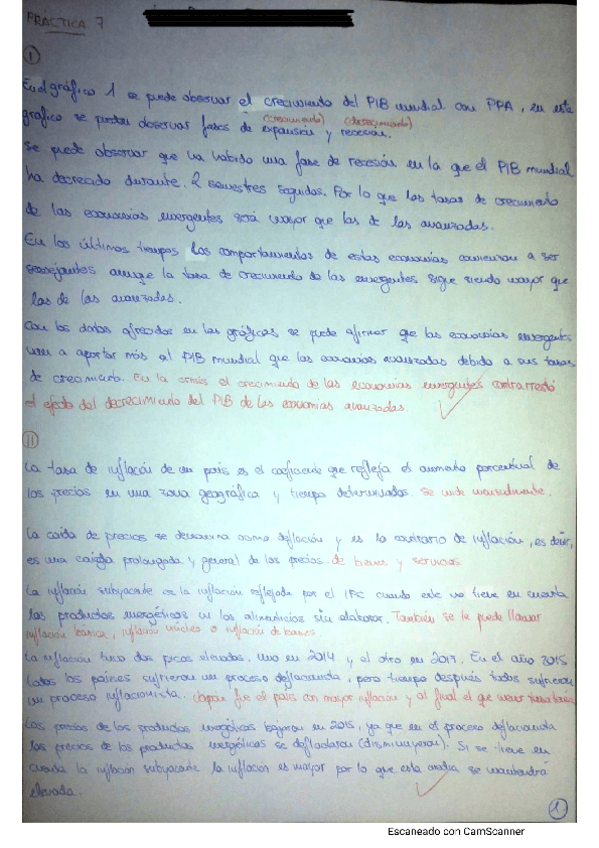 PRÁCTICA 7
I
En el gráfico 1 se puede observar el crecimiento del PIB mundial con PPA, en este
gráfico se puede observar fases de expansión y recesión.
(crecimiento) (decrecimiento)
Se puede observar que ha habido una fase de recesión en la que el PIB mundial
ha decrecido durante 2 semestres seguidos. Por lo que las tasas de crecimiento
de las economías emergentes será mayor que las de las avanzadas.
En los últimos tiempos los comportamientos de estas economías comienzan a ser
semejantes aunque la tasa de crecimiento de las emergentes sigue siendo mayor que
las de las avanzadas.
Con los datos ofrecidos en las gráficas se puede afirmar que las economías emergentes
van a aportar más al PIB mundial que las economías avanzadas debido a sus tasas
de crecimiento. En la crisis el crecimiento de las economías emergentes contrarrestó
el efecto del decrecimiento del PIB de las economías avanzadas.
II
La tasa de inflación de un país es el coeficiente que refleja el aumento porcentual de
los precios en una zona geográfica y tiempo determinados. Se mide mensualmente.
La caída de precios se denomina como deflación y es lo contrario de inflación, es decir,
es una caída prolongada y general de los precios de bienes y servicios
La inflación subyacente es la inflación reflejada por el IPC cuando este no tiene en cuenta
los productos energéticos ni los alimenticios sin elaborar. También se le puede llamar
inflación básica, inflación núcleo o inflación de bienes.
La inflación tuvo dos picos elevados, uno en 2014 y el otro en 2017. En el año 2015
todos los países sufrieron un proceso deflacionista, pero tiempo después todos sufrieron
un proceso inflacionista. Japón fue el país con mayor inflación y al final el que menor
Los precios de los productos energéticos bajaron en 2015, ya que en el proceso deflacionista
los precios de los productos energéticos se deflactaron (disminuyeron). Si se tiene en
cuenta la inflación subyacente la inflación es mayor por lo que esta se mantendrá
elevada.
1
Escaneado con CamScanner